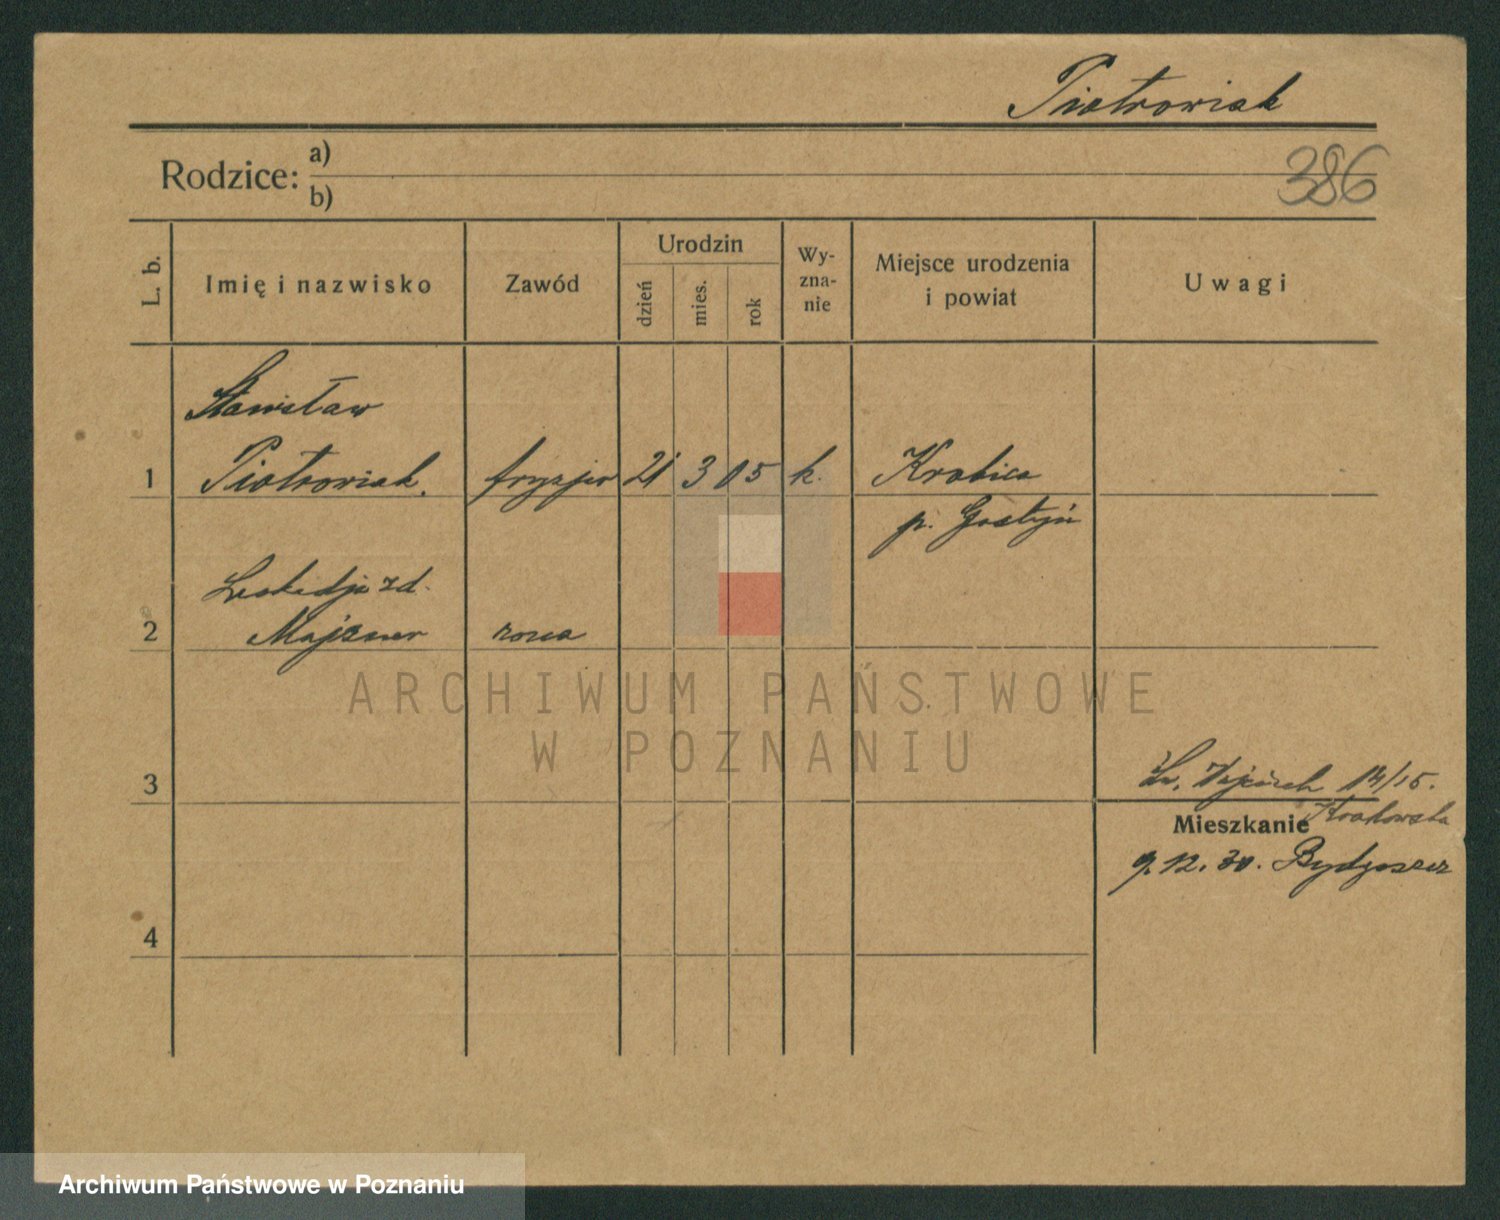 Piotrowiak
Rodzice: a)
b)
386
L. b. Imię i nazwisko Zawód Urodzin dzień mies. rok Wy-zna-nie Miejsce urodzenia i powiat Uwagi
Stanisław
1 Piotrowiak. fryzjer 21 3 05 k. Krobia
p. Gostyń
zd.
2 Majzner
ARCHIWUM PAŃSTWOWE
W POZNANIU
3 Św. Wojciech 14/15.
Mieszkanie Krakowska
9.12.30. Bydgoszcz
4
Archiwum Państwowe w Poznaniu